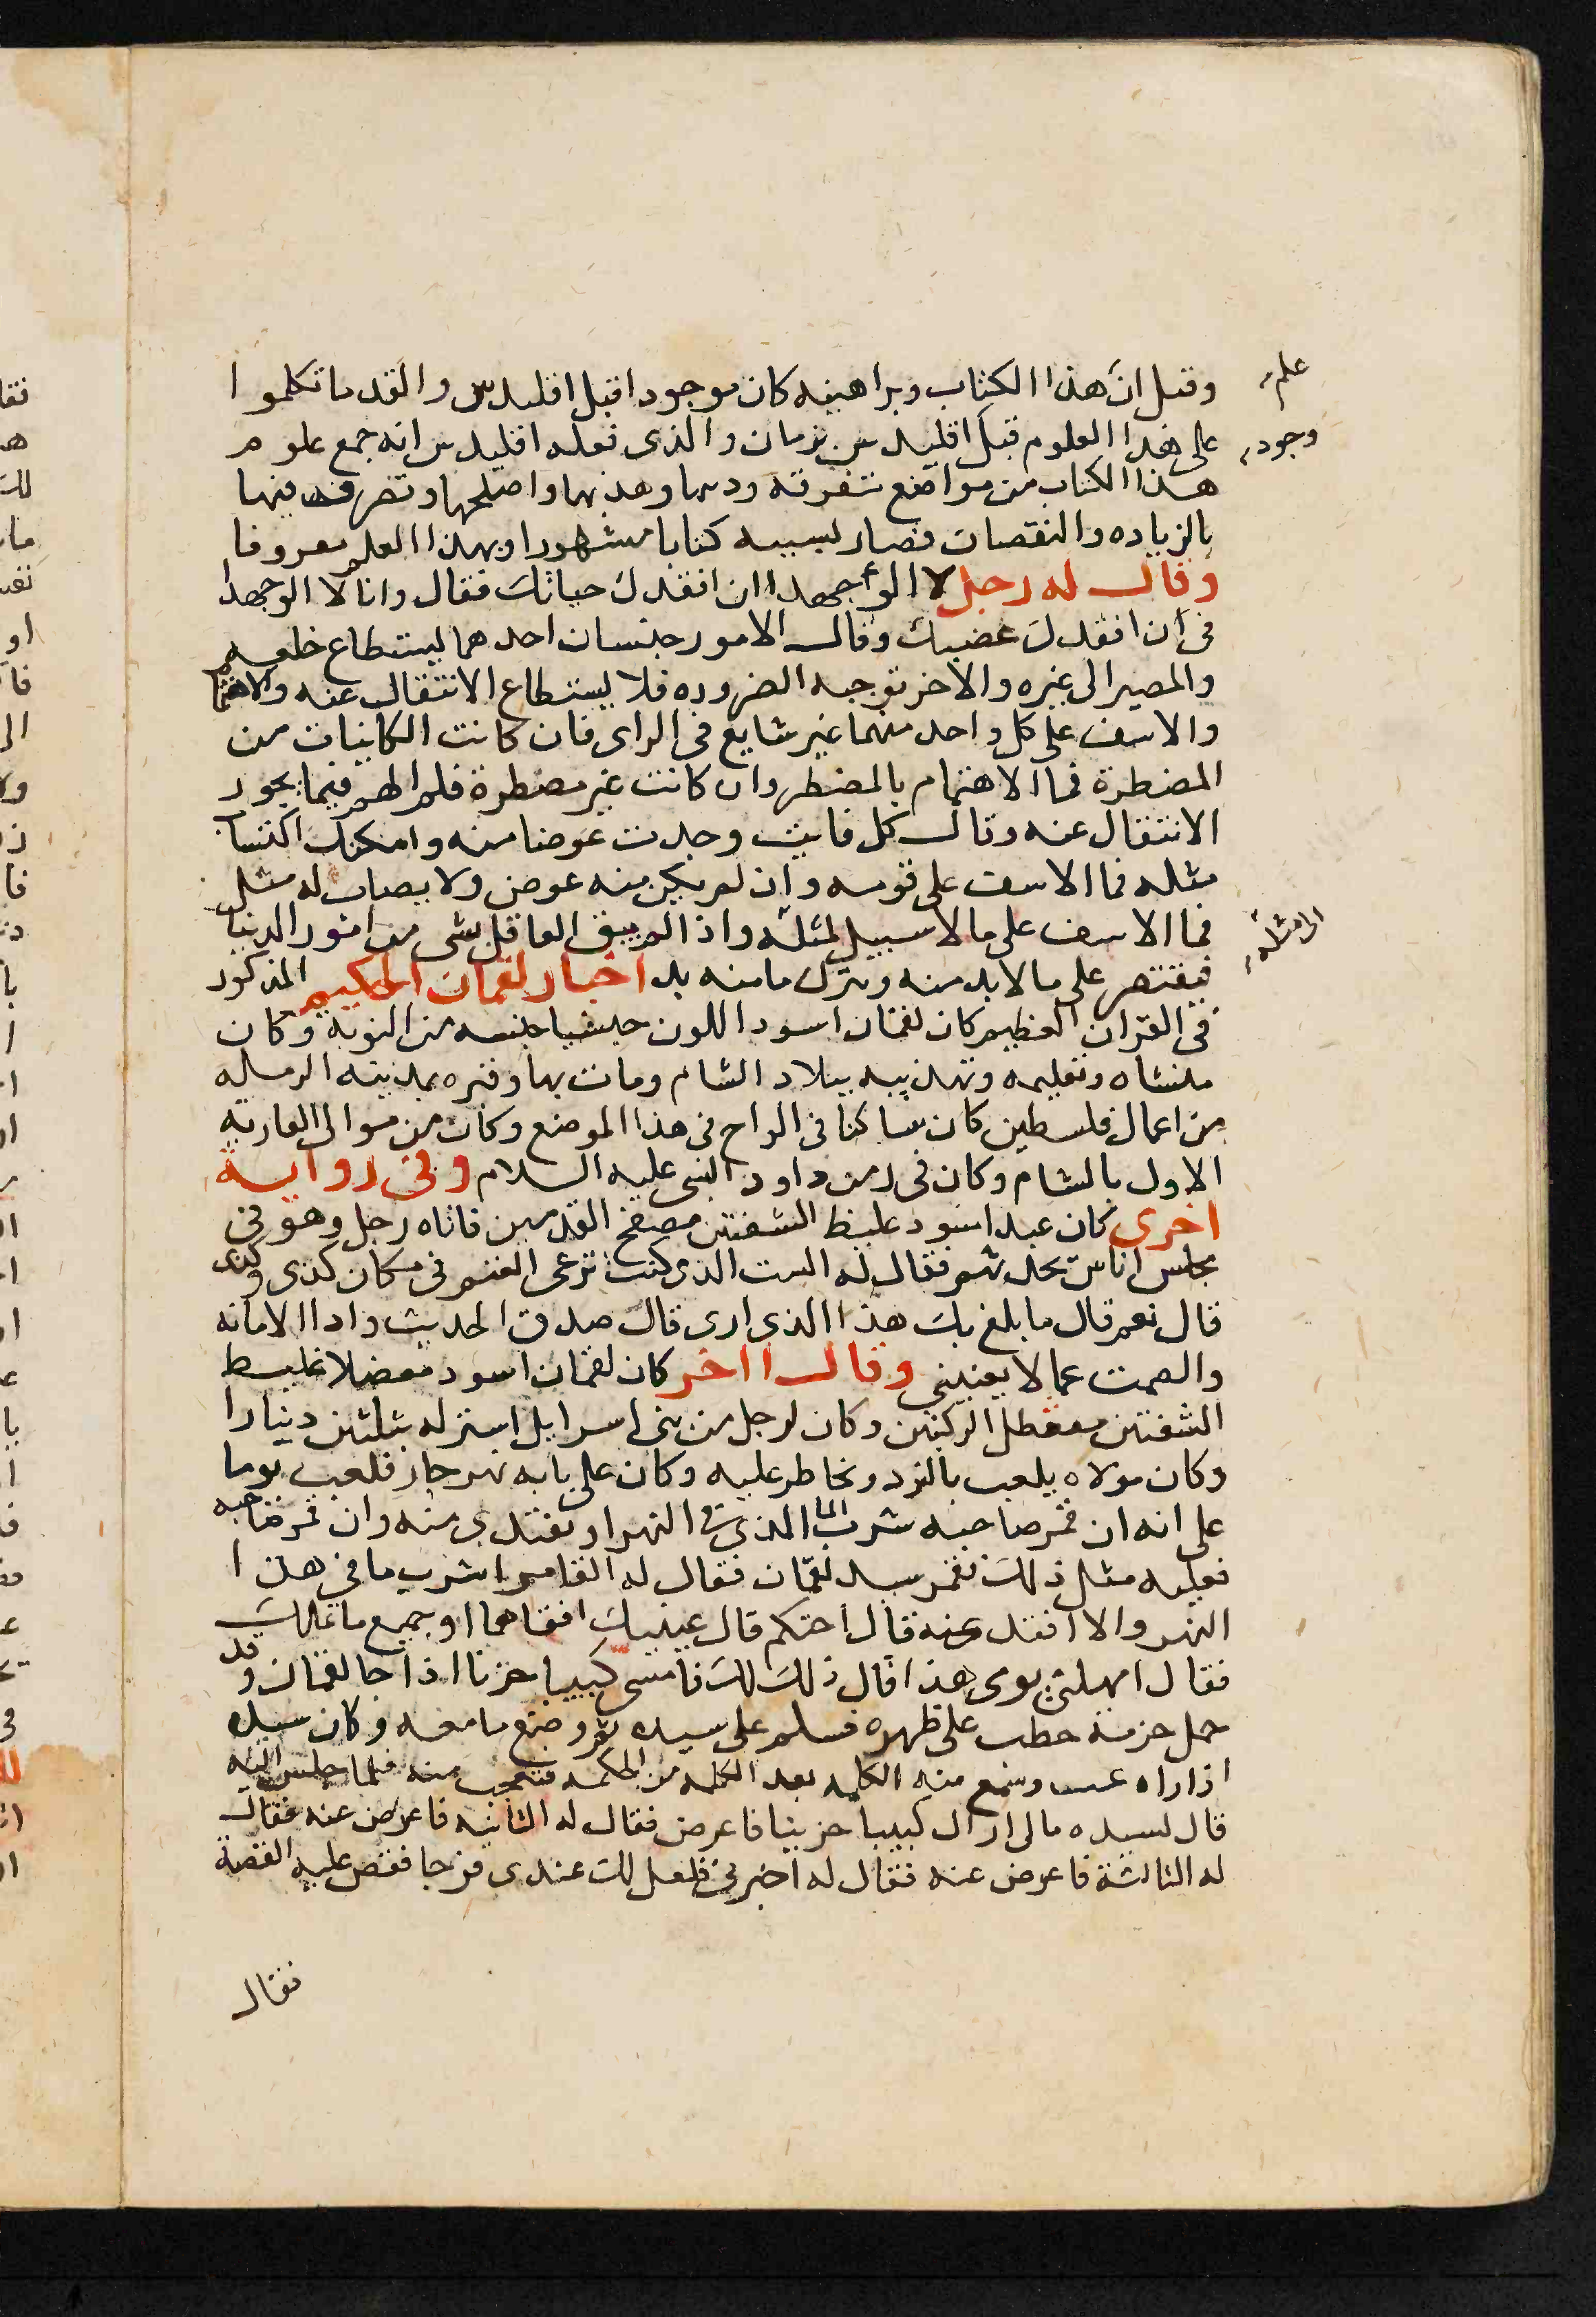 وقيل ان هذا الكتاب وبراهينه كان موجودا قبل اقليدس والقدما تكلموا
علم
على هذا العلوم قبل اقليدس بزمان والذى فعله اقليدس انه جمع علوم
وجود
هذا الكتاب من مواضع متفرقه ودبها وهذبها واصلحها وتصرف فيها
بالزياده والنقصان فصار بسببه كتابا مشهورا وبهذا العلم معروفا
وقال له رجل لا الو جهدا ان افقدك حياتك فقال وانا لا الو جهدا
فى ان افقدك غضبك وقال الامور جنسان احدهما يستطاع خلعه
والمصير الى غيره والاخر توجبه الضروره فلا يستطاع الانتقال عنه والاهتمام
والاسف على كل واحد منهما غير شايع فى الراى فان كانت الكاينات من
المضطرة فما الاهتمام بالمضطر وان كانت غير مضطرة فلم الهم فيما يجوز
الانتقال عنه وقال كل فايت وجدت عوضا منه وامكنك اكتساب
مثله فما الاسف على فوته وان لم يكن منه عوض ولا يصاب له مثل
فما الاسف على ما لا سبيل لمثله واذا لم يبق العاقل بشى من امور الدنيا
الى مثله
فيقتصر على ما لابد منه ويترك ما منه بد اخبار لقمان الحكيم المذكور
فى القران العظيم كان لقمان اسود اللون حبشيا جنسه من النوبه وكان
منشاه وتعليمه وتهذيبه ببلاد الشام ومات بها وقبره بمدينه الرمله
من اعمال فلسطين كان ساكنا فى الراح فى هذا الموضع وكان من موالى العاربه
الاول بالشام وكان فى زمن داود النبى عليه السلام وفى رواية
اخرى كان عبدا اسود غليظ الشفتين مصفح القدمين فاتاه رجل وهو فى
مجلس اناس يحدثهم فقال له الست الذى كنت ترعى الغنم فى مكان كذى وكذى
قال نعم قال ما بلغ بك هذا الذى ارى قال صدق الحديث وادا الامانه
والصمت عما لا يعنينى وقال اخر كان لقمان اسود معضلا غليظ
الشفتين مفطل الركبتين وكان لرجل من بنى اسرايل اشتراه بثلثين دينارا
وكان مولاه يلعب بالنرد ويخاطر عليه وكان على بابه نهر جار فلعب يوما
على انه ان قمر صاحبه شرب الما الذى فى النهر او يفتدى منه وان قمر صاحبه
فعليه مثل ذلك فقمر سيد لقمان فقال له القامر اشرب ما فى هذا
النهر والا افتد منه قال احتكم قال عينيك افقاهما او جميع ما تملك
فقال امهلنى يومى هذا قال ذلك لك فامسى كييبا حزنا اذا جا لقمان وقد
حمل حزمة حطب على ظهره فسلم على سيده ثم وضع ما معه وكان سيده
اذا راه عبث وسمع منه الكلمه بعد الكلمه من الحكمه فتعجب منه فلما جلس اليه
قال لسيده مالى اراك كييبا حزينا فاعرض فقال له الثانيه فاعرض عنه فقال
له الثالثة فاعرض عنه فقال له اخبرنى فلعل لك عندى فرجا فقص عليه القصة
فقال